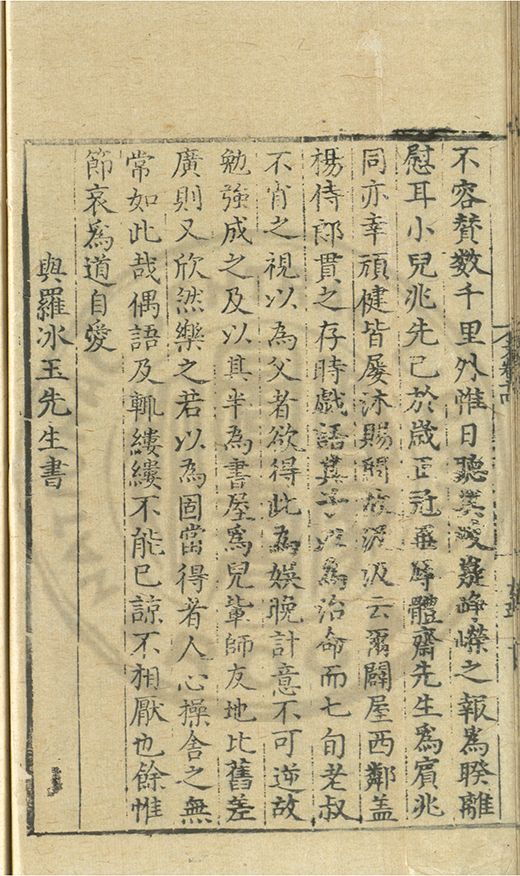 不容贅数千里外惟日聽嶷崢嶸之報為睽離
慰耳小兒兆先已於歲正冠辱體齋先生為賓兆
同亦幸頑健皆屡沐賜汲云爾闢屋西鄰盖
楊侍郎貫之存時戯語其以為治命而七旬老叔
不肖之視以為父者欲得此為娯晩計意不可逆故
勉強成之及以其半為書屋為兒輩師友地比舊差
廣則又欣然樂之若以為固當得者人心操舍之無
常如此哉偶語及輙縷縷不能已諒不相厭也餘惟
節哀為道自愛
與羅冰玉先生書